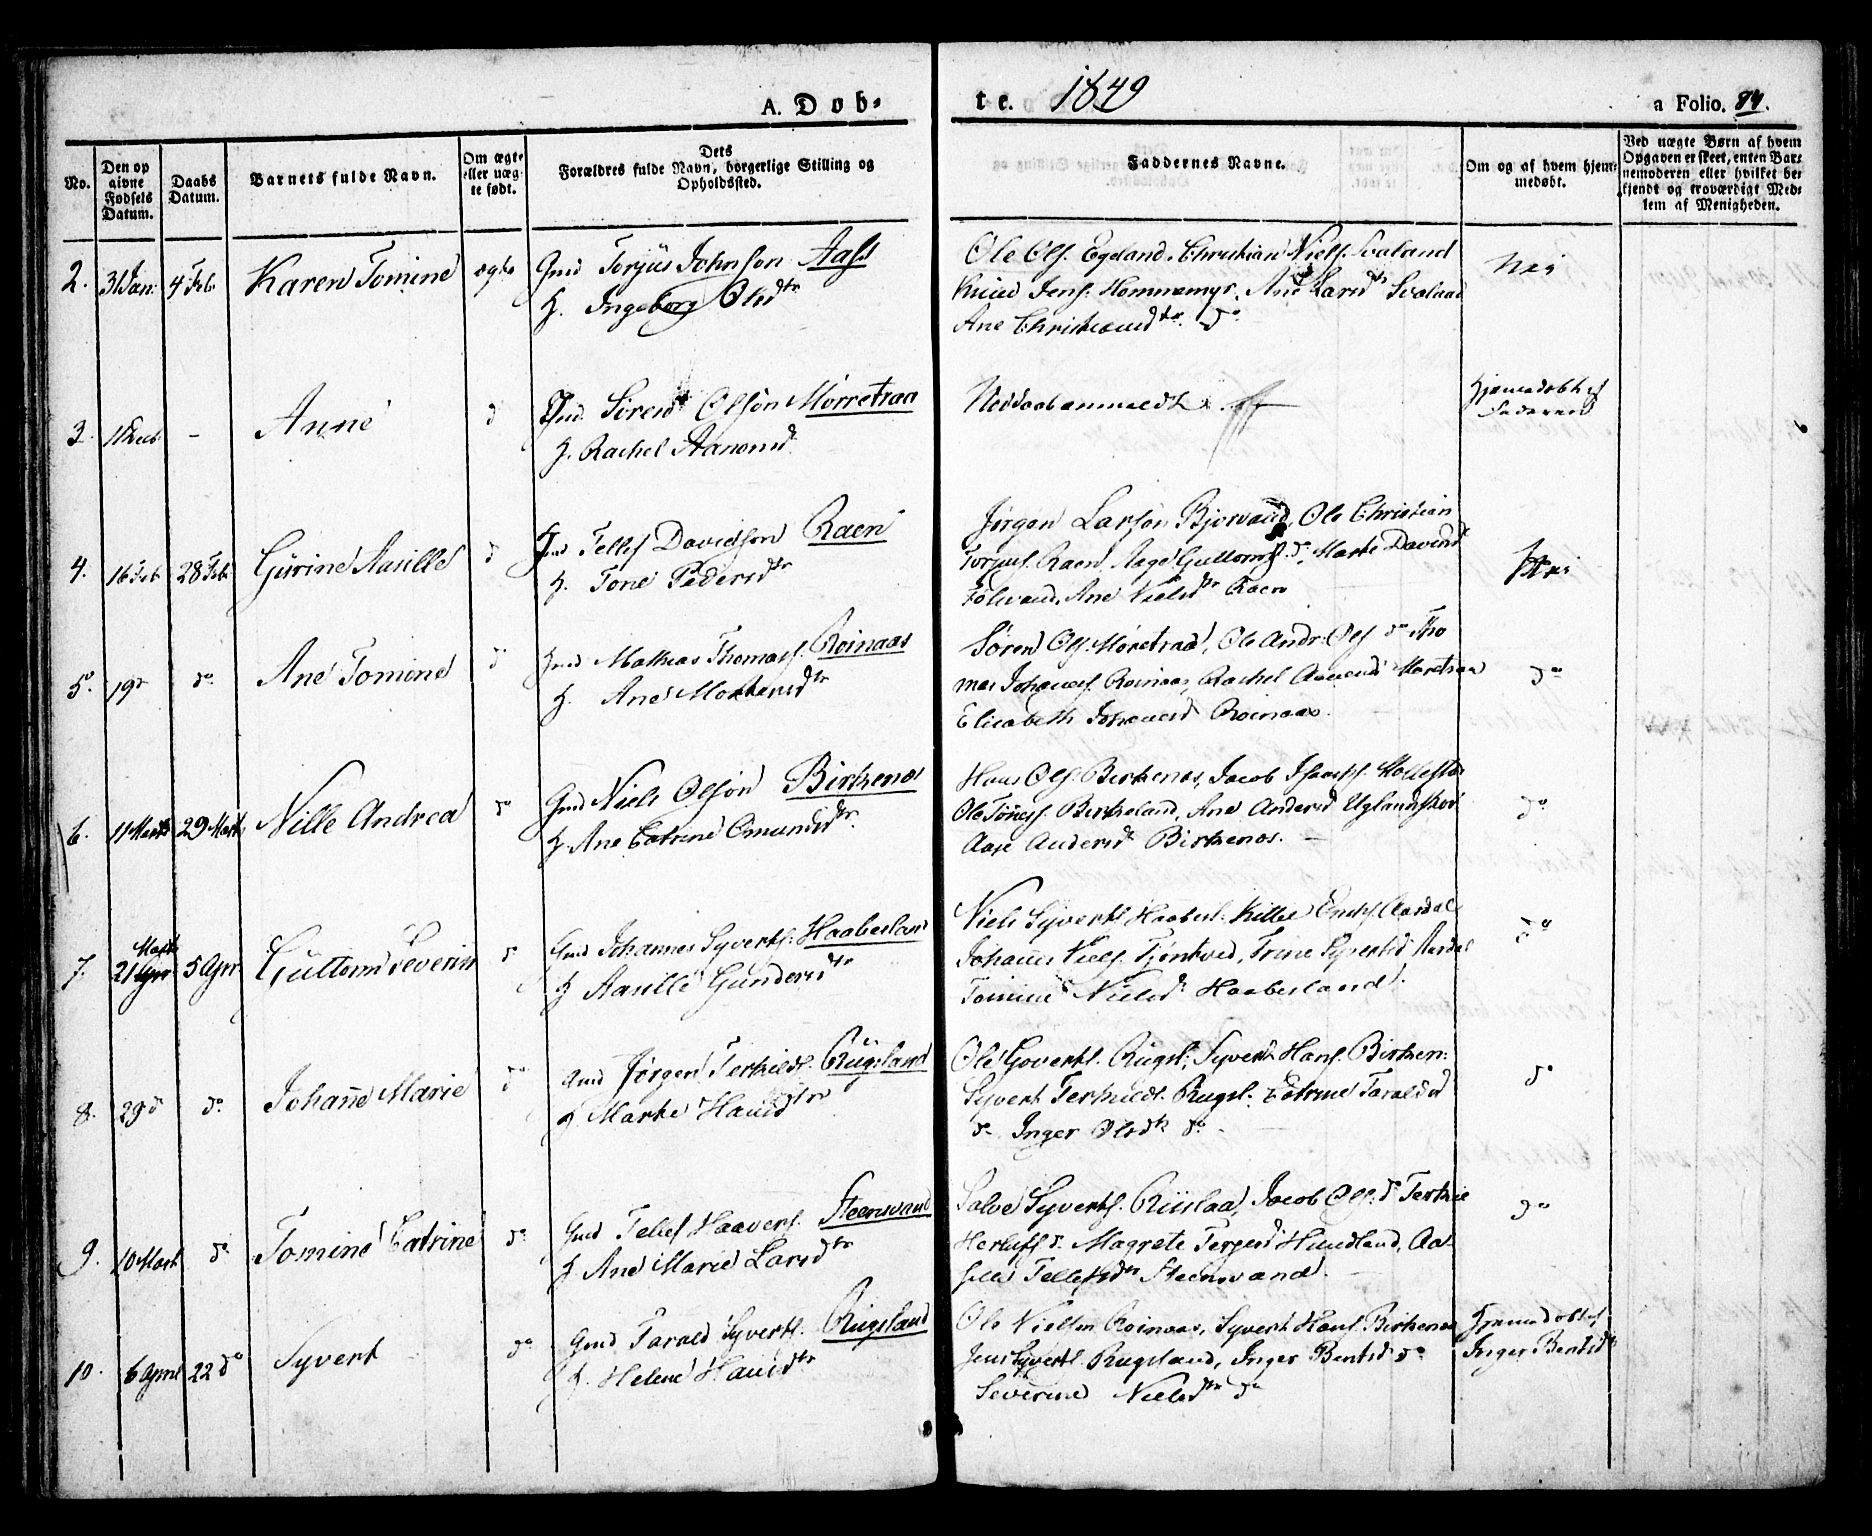 A. Døb-
te. 1849
a Folio. 84.
No.
Den op
givne
Fødsels
Datum.
Daabs
Datum.
Barnets fulde Navn.
Om ægte
eller uæg-
te født.
Dets
Forældres fulde Navn, borgerlige Stilling og
Opholdssted.
Faddernes Navne.
Om og af hvem hjem-
medøbt.
Ved uægte Børn af hvem
Opgaven er skeet, enten Bar-
nemoderen eller hvilket be-
kjendt og troværdigt Med-
lem af Menigheden.
2. 31 Jan: 4 Feb. Karen Tomine ægte Gmd Torjüs Johnson Aas
H. Ingeborg Olsdtr
Ole Ols. Egeland, Christian Niels. Svaland
Knud Jens. Hommemyr, Ane Larsdtr Svaland
Ane Christiansdtr do
Nei
3. 11 Feb. - Anne d Gmd Søren Olsøn Morretraa
H. Rachel Aanensd
Neddaabanmeldt
Hjemmedøbt af
Faderen
4. 16 Feb 28 Feb. Gürine Aasille d Gmd Tellef Davidson Raen
H. Tone Pedersdtr
Jørgen Larsøn Bjorvand, Ole Christian
Torjus. Raen, Aage Guttorms. d., Marte Davidsd
Tolvand, Ane Nielsdtr Raen
Nei
5. 19 d do Ane Tomine d Gmd Mathias Thomas. Roinaas
H. Ane Mortensdtr
Søren Ols. Moretraa, Ole Andr. Ols do Tho
mas Johannes. Roinaas, Rachel Aanensd Moretraa
Elisabeth Johannesd Roinaas.
do
6. 11 Marts 29 Marts Nille Andrea do Gmd Niels Olsøn Birkenes
H. Ane Catrine Omundsdtr.
Hans Ols. Birkenes, Jacob Isachs. Mollestad
Ole Tønes. Birkeland, Ane Andersd Uglandskov
Aase Andersd Birkenes.
do
7. Marts
21 Apr 5 Apr. Güttorm Severin do Gmd Johannes Syverts. Haabesland
H Aasille Gundersdtr
Niels Syverts Haabesl. Aardal
Johannes Niels. Tjentved, Trine Syvertsd Aardal
Tomine Nielsd. Haabesland.
do
8. 29 d do. Johanne Marie do Gmd Jørgen Terkilds. Rügsland
H Marte Hansdtr
Ole Goverts. Rugsl., Syvert Hans. Birken:
Syvert Terkilds. Rugsl. Catrine Taraldsd
do Inger Olsdtr do
do
9. 10 Mart do Tomine Catrine do. Gmd Tellef Haavers. Steensvand
H Ane Marie Larsdtr
Salve Syverts. Riislaa, Jacob Ols. d. Terkie
Herlufs d. Magrete Terjesd Hundland, Aa-
sille Tellefsdtr Steensvand.
do
10. 6 April 22 do Syvert do Gmd Tarald Syverts. Rügsland
H. Helene Hansdtr
Ole Nielsen Roinaas, Syvert Hans. Birkenes
Jens Syverts. Rugsland, Inger Bentsd do
Severine Nielsdtr do
Hjemmedøbt af
Inger Bentsd